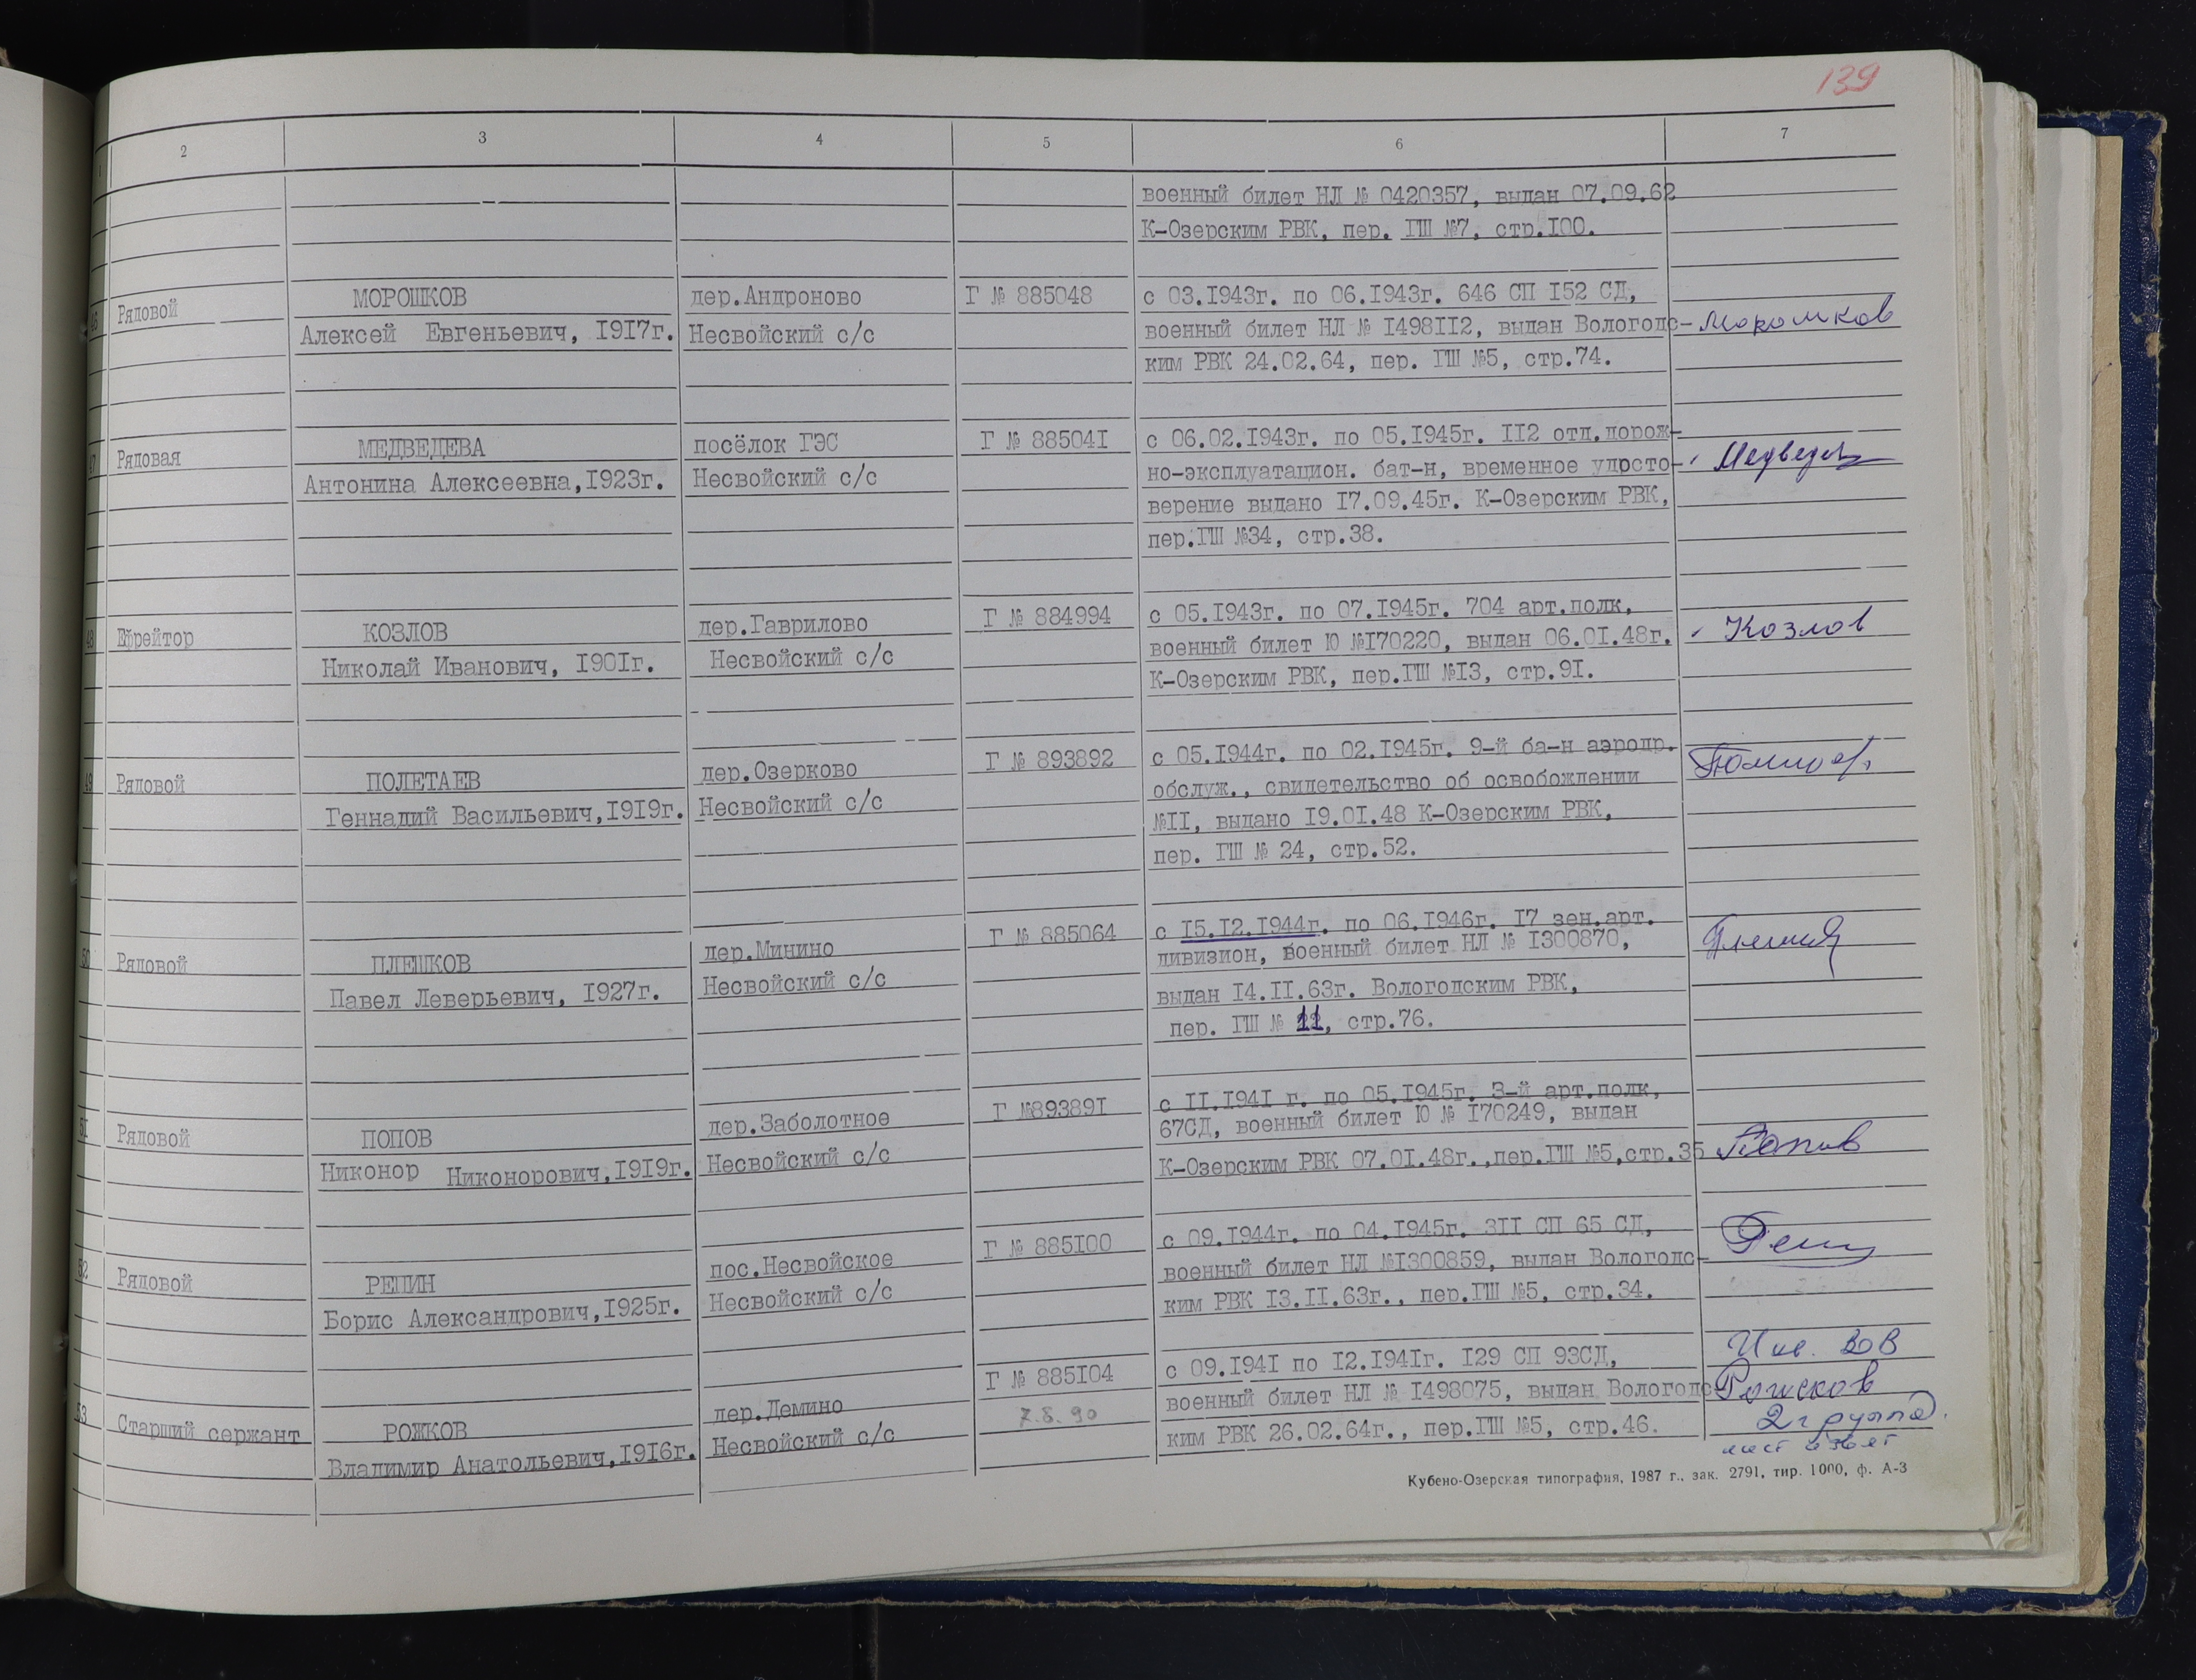 139
1 2 3 4 5 6 7
военный билет НЛ № 0420357, выдан 07.09.62
К-Озерским РВК, пер. ГШ №7, стр.I00.
46 Рядовой
МОРОШКОВ
Алексей Евгеньевич, I9I7г.
дер.Андроново
Несвойский с/с
Г № 885048
с 03.I943г. по 06.I943г. 646 СП I52 СД,
военный билет НЛ № I498II2, выдан Вологодс-
ким РВК 24.02.64, пер. ГШ №5, стр.74.
Морошков
47 Рядовая
МЕДВЕДЕВА
Антонина Алексеевна,I923г.
посёлок ГЭС
Несвойский с/с
Г № 88504I
с 06.02.I943г. по 05.I945г. II2 отд.дорож-
но-эксплуатацион. бат-н, временное удосто-
верение выдано I7.09.45г. К-Озерским РВК,
пер.ГШ №34, стр.38.
48 Ефрейтор
КОЗЛОВ
Николай Иванович, I90Iг.
дер.Гаврилово
Несвойский с/с
Г № 884994
с 05.I943г. по 07.I945г. 704 арт.полк,
военный билет Ю №I70220, выдан 06.0I.48г.
К-Озерским РВК, пер.ГШ №I3, стр.9I.
Козлов
49 Рядовой
ПОЛЕТАЕВ
Геннадий Васильевич,I9I9г.
дер.Озерково
Несвойский с/с
Г № 893892
с 05.I944г. по 02.I945г. 9-й ба-н аэродр.
обслуж., свидетельство об освобождении
№II, выдано I9.0I.48 К-Озерским РВК,
пер. ГШ № 24, стр.52.
50 Рядовой
ПЛЕШКОВ
Павел Леверьевич, I927г.
дер.Минино
Несвойский с/с
Г № 885064
с I5.I2.I944г. по 06.I946г. I7 зен.арт.
дивизион, военный билет НЛ № I300870,
выдан I4.II.63г. Вологодским РВК,
пер. ГШ № 11, стр.76.
51 Рядовой
ПОПОВ
Никонор Никонорович,I9I9г.
дер.Заболотное
Несвойский с/с
Г №89389I
с II.I94I г. по 05.I945г. 3-й арт.полк,
67СД, военный билет Ю № I70249, выдан
К-Озерским РВК 07.0I.48г.,пер.ГШ №5,стр.35
Попов
52 Рядовой
РЕПИН
Борис Александрович,I925г.
пос.Несвойское
Несвойский с/с
Г № 885I00
с 09.I944г. по 04.I945г. 3II СП 65 СД,
военный билет НЛ №I300859, выдан Вологодс-
ким РВК I3.II.63г., пер.ГШ №5, стр.34.
53 Старший сержант
РОЖКОВ
Владимир Анатольевич,I9I6г.
дер.Демино
Несвойский с/с
Г № 885I04
7.8.90
с 09.I94I по I2.I94Iг. I29 СП 93СД,
военный билет НЛ № I498075, выдан Вологодс
ким РВК 26.02.64г., пер.ГШ №5, стр.46.
Инв. ВОВ
Рожков
2 группа.
Кубено-Озерская типография, 1987 г., зак. 2791, тир. 1000, ф. А-3